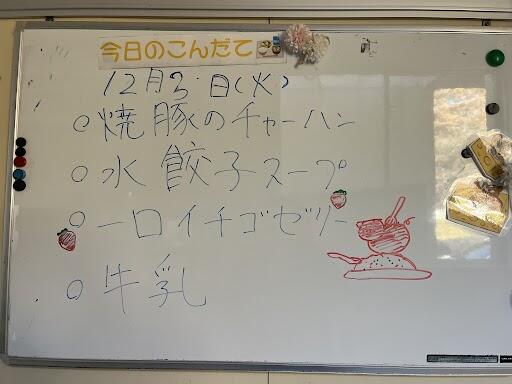 今日のこんだて
12月3日(火)
○焼豚のチャーハン
○水餃子スープ
○一口イチゴゼリー
○牛乳